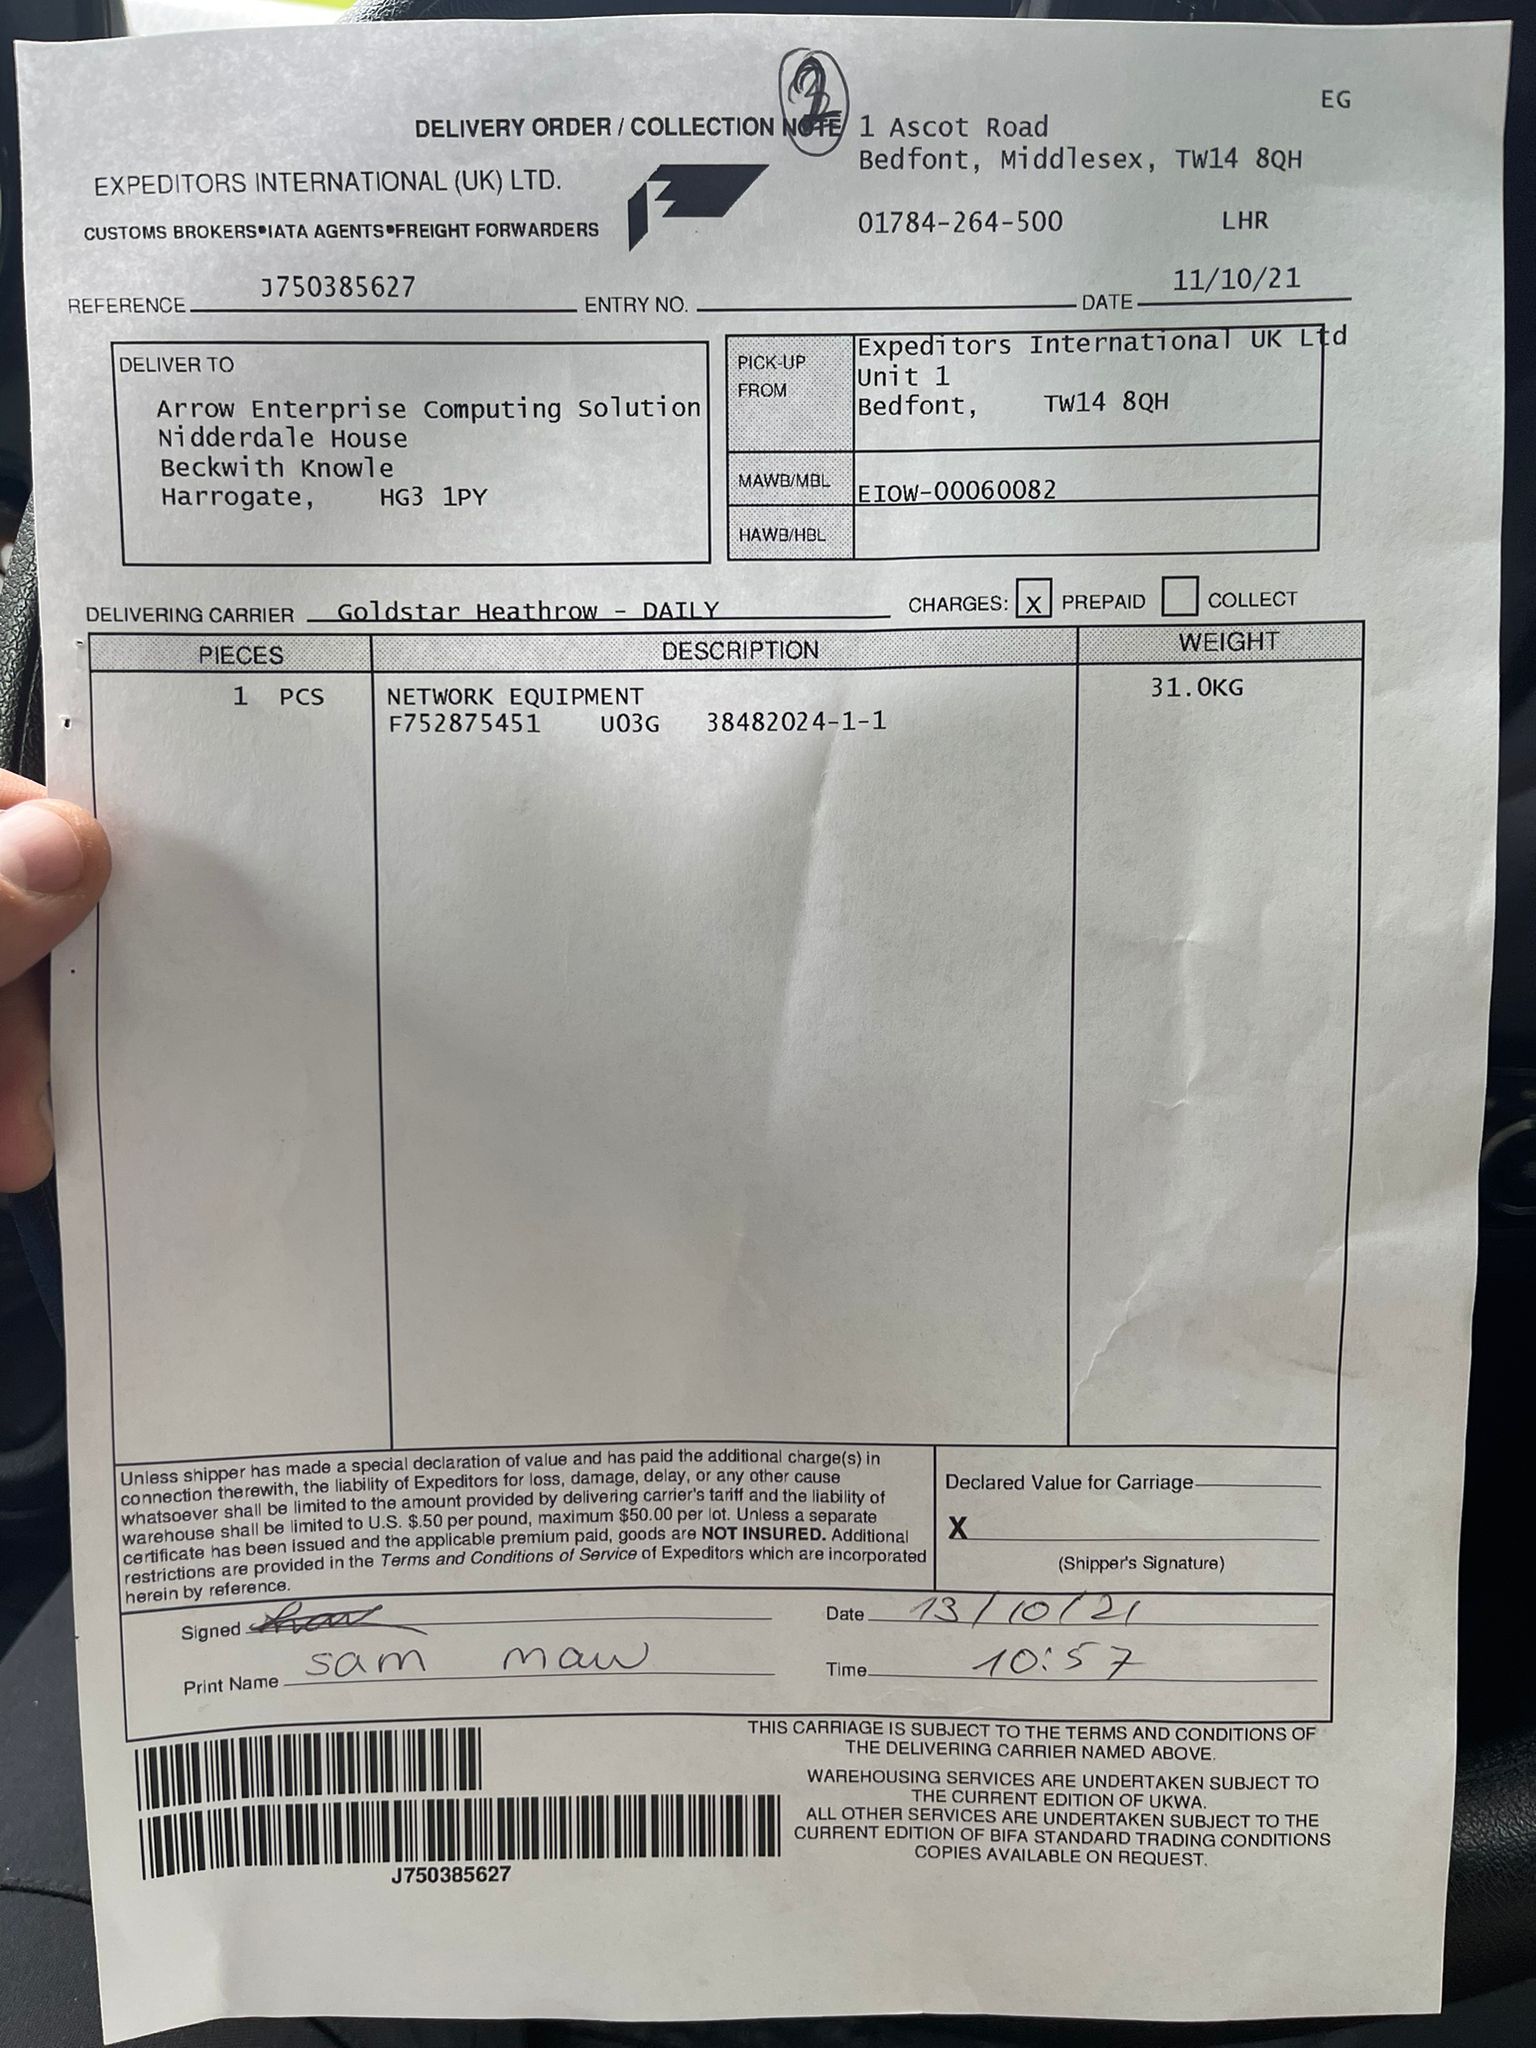 EG
DELIVERY ORDER / COLLECTION NOTE
1 Ascot Road
Bedfont, Middlesex, TW14 8QH
EXPEDITORS INTERNATIONAL (UK) LTD.
CUSTOMS BROKERS•IATA AGENTS•FREIGHT FORWARDERS
01784-264-500 LHR
REFERENCE J750385627 ENTRY NO. DATE 11/10/21
DELIVER TO
Arrow Enterprise Computing Solution
Nidderdale House
Beckwith Knowle
Harrogate, HG3 1PY
PICK-UP FROM
Expeditors International UK Ltd
Unit 1
Bedfont, TW14 8QH
MAWB/MBL EIOW-00060082
HAWB/HBL
DELIVERING CARRIER Goldstar Heathrow - DAILY CHARGES: X PREPAID COLLECT
PIECES DESCRIPTION WEIGHT
1 PCS NETWORK EQUIPMENT 31.0KG
F752875451 U03G 38482024-1-1
Unless shipper has made a special declaration of value and has paid the additional charge(s) in
connection therewith, the liability of Expeditors for loss, damage, delay, or any other cause
whatsoever shall be limited to the amount provided by delivering carrier's tariff and the liability of
warehouse shall be limited to U.S. $.50 per pound, maximum $50.00 per lot. Unless a separate
certificate has been issued and the applicable premium paid, goods are NOT INSURED. Additional
restrictions are provided in the Terms and Conditions of Service of Expeditors which are incorporated
herein by reference.
Declared Value for Carriage
X
(Shipper's Signature)
Signed Date 13/10/21
Print Name sam maw Time 10:57
THIS CARRIAGE IS SUBJECT TO THE TERMS AND CONDITIONS OF
THE DELIVERING CARRIER NAMED ABOVE.
WAREHOUSING SERVICES ARE UNDERTAKEN SUBJECT TO
THE CURRENT EDITION OF UKWA.
ALL OTHER SERVICES ARE UNDERTAKEN SUBJECT TO THE
CURRENT EDITION OF BIFA STANDARD TRADING CONDITIONS
COPIES AVAILABLE ON REQUEST.
J750385627